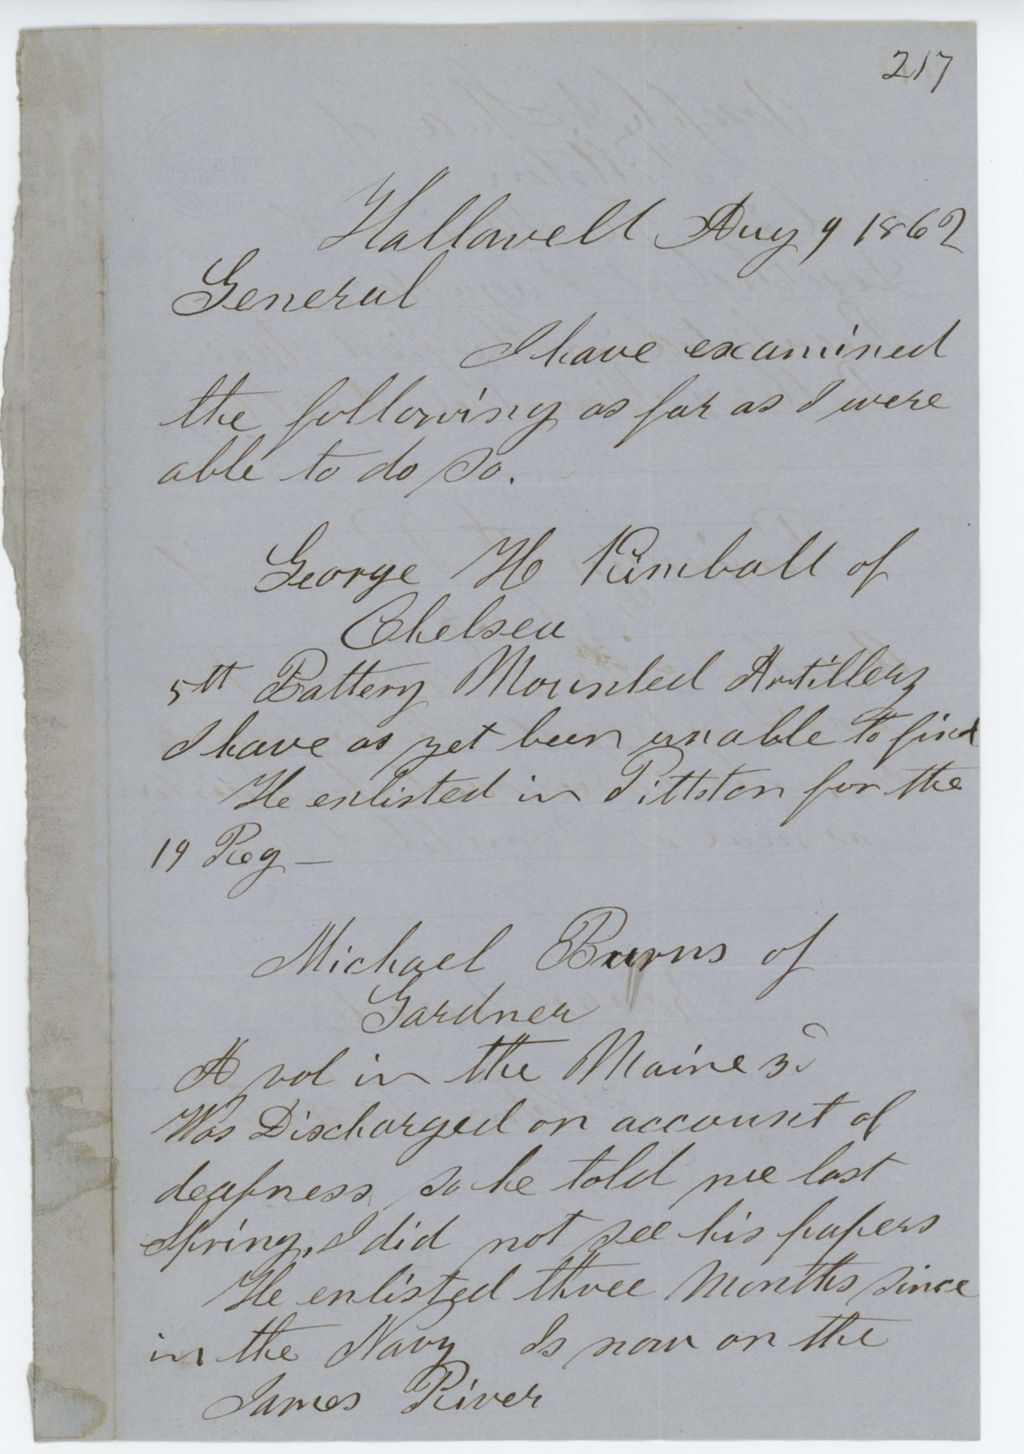 217
Hallowell Aug 9 1862
General
I have examined
the following as far as I were
able to do so.
George H Kimball of
Chelsea
5th Battery Mounted Artillery
I have as yet been unable to find
He enlisted in Pittston for the
19 Reg —
Michael Burns of
Gardner
A vol in the Maine 3d
Was Discharged on account of
deafness so he told me last
Spring, I did not see his papers
He enlisted three Months since
in the Navy Is now on the
James River